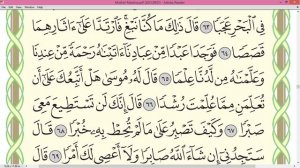 فِي ٱلْبَحْرِ عَجَبًا ٦٣ قَالَ ذَٰلِكَ مَا كُنَّا نَبْغِ فَٱرْتَدَّا عَلَىٰٓ ءَاثَارِهِمَا
قَصَصًا ٦٤ فَوَجَدَا عَبْدًا مِّنْ عِبَادِنَآ ءَاتَيْنَٰهُ رَحْمَةً مِّنْ عِندِنَا
وَعَلَّمْنَٰهُ مِن لَّدُنَّا عِلْمًا ٦٥ قَالَ لَهُۥ مُوسَىٰ هَلْ أَتَّبِعُكَ عَلَىٰٓ أَن
تُعَلِّمَنِ مِمَّا عُلِّمْتَ رُشْدًا ٦٦ قَالَ إِنَّكَ لَن تَسْتَطِيعَ مَعِيَ
صَبْرًا ٦٧ وَكَيْفَ تَصْبِرُ عَلَىٰ مَا لَمْ تُحِطْ بِهِۦ خُبْرًا ٦٨ قَالَ
سَتَجِدُنِىٓ إِن شَآءَ ٱللَّهُ صَابِرًا وَلَآ أَعْصِى لَكَ أَمْرًا ٦٩ قَالَ